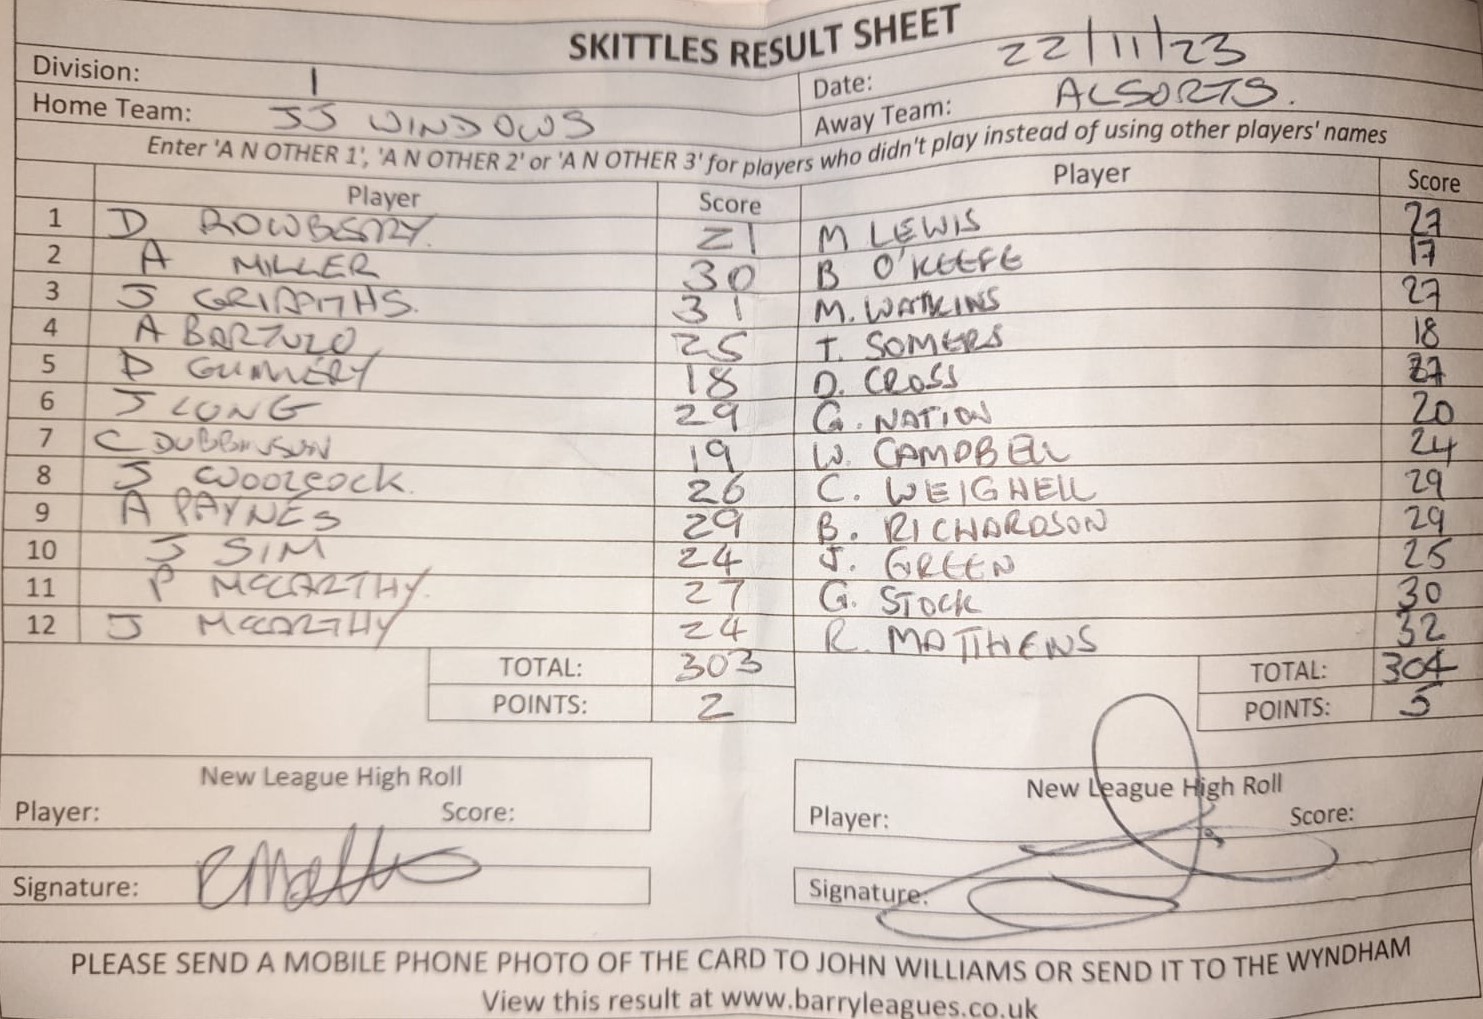 SKITTLES RESULT SHEET
Division: 1 Date: 22/11/23
Home Team: JJ WINDOWS Away Team: ALSORTS.
Enter 'A N OTHER 1', 'A N OTHER 2' or 'A N OTHER 3' for players who didn't play instead of using other players' names
Player Score Player Score
1 D ROWBERRY. 21 M LEWIS 27
2 A MILLER 30 B O'KEEFE 17
3 J GRIFFITHS. 31 M. WATKINS 27
4 A BARTOLO 25 T. SOMERS 18
5 D GUMMERY 18 D. CROSS 27
6 J LONG 29 G. NATION 20
7 C 19 W. CAMPBELL 24
8 J WOOLCOCK. 26 C. WEIGHELL 29
9 A PAYNES 29 B. RICHARDSON 29
10 J SIM 24 J. GREEN 25
11 P MCCARTHY. 27 G. STOCK 30
12 J MCCARTHY 24 R. MATTHEWS 32
TOTAL: 303 TOTAL: 304
POINTS: 2 POINTS: 5
New League High Roll New League High Roll
Player: Score: Player: Score:
Signature: Signature:
PLEASE SEND A MOBILE PHONE PHOTO OF THE CARD TO JOHN WILLIAMS OR SEND IT TO THE WYNDHAM
View this result at www.barryleagues.co.uk